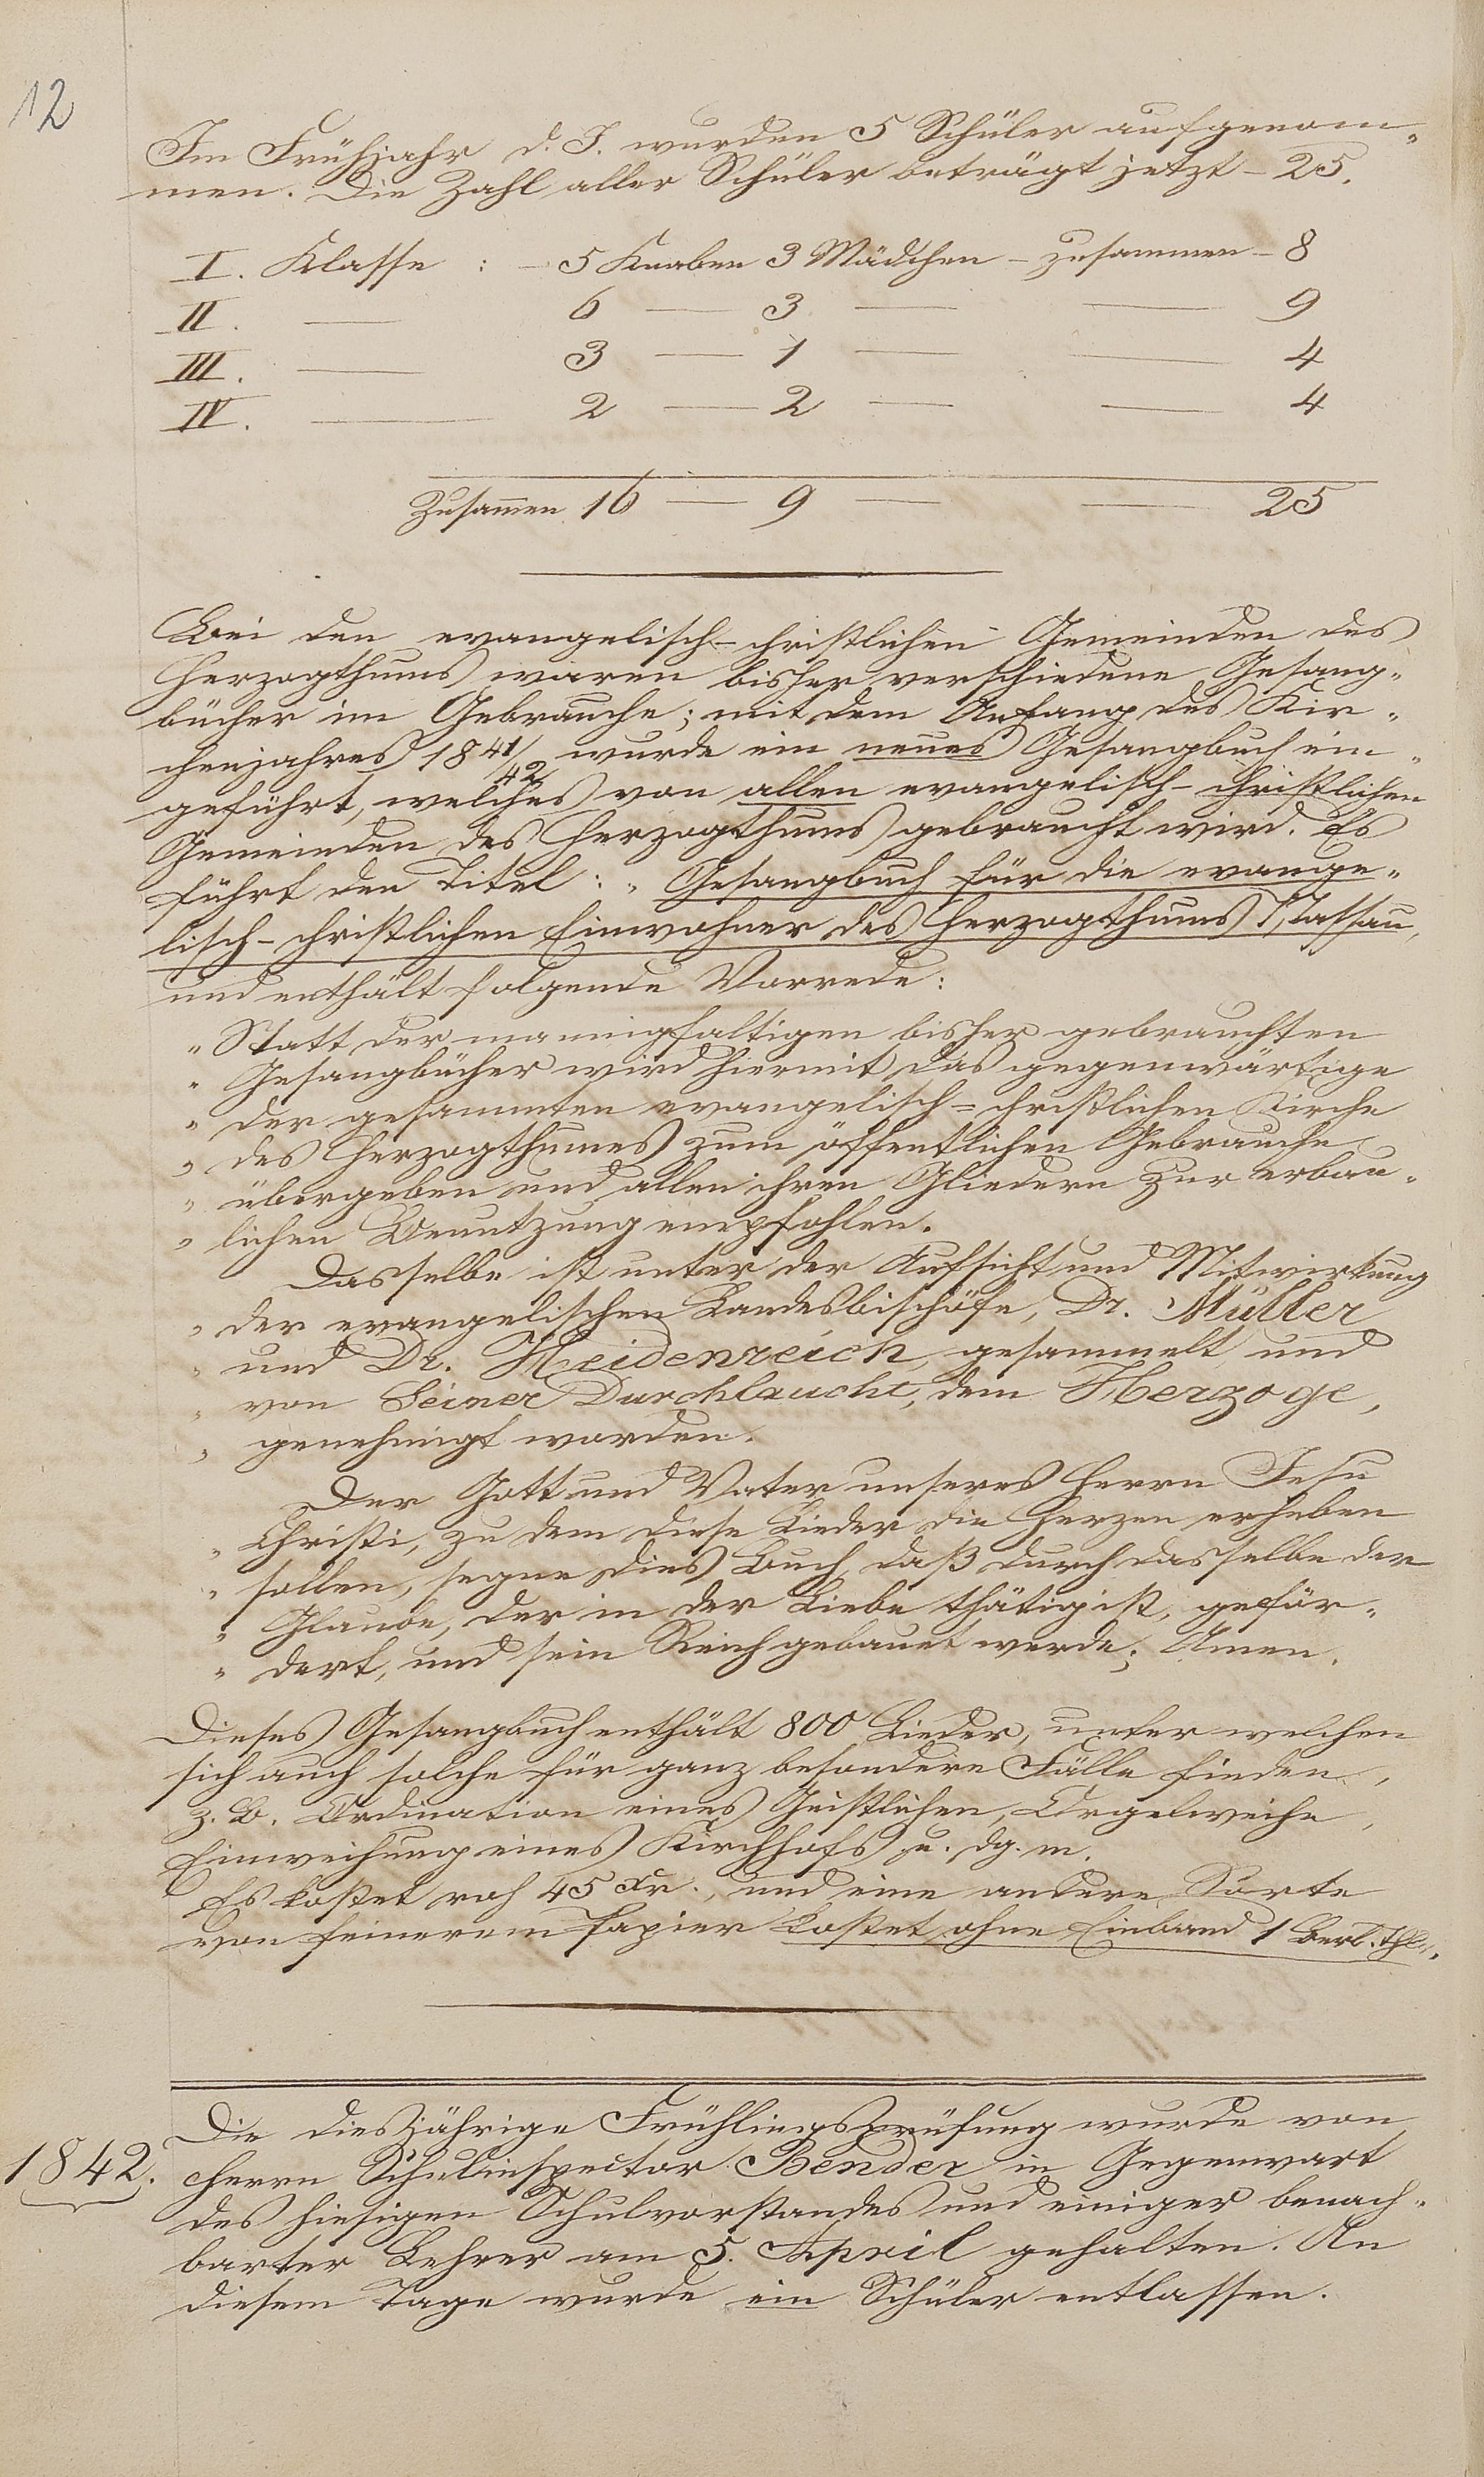 12
Im Frühjahr d. J. wurden 5 Schüler aufgenom„
men. Die Zahl aller Schüler beträgt jetzt – 25.
I. Klasse : – 5 Knaben 3 Mädchen – zusammen – 8
II. — 6 — 3 — — 9
III. — 3 — 1 — — 4
IV. — 2 — 2 — — 4
Zusammen 16 — 9 — — 25
Bei den evangelisch-christlichen Gemeinden des
Herzogthums waren bisher verschiedene Gesang„
bücher im Gebrauche; mit dem Anfang des Kir„
chenjahres 1841/42 wurde ein neues Gesangbuch ein„
geführt, welches von allen evangelisch-christlichen
Gemeinden des Herzogthums gebraucht wird. Es
führt den Titel: „Gesangbuch für die evange„
lisch-christlichen Einwohner des Herzogthums Nassau,
und enthält folgende Vorrede:
„ Statt der mannigfaltigen bisher gebrauchten
„ Gesangbücher wird hiermit das gegenwärtige
„ der gesammten evangelisch=christlichen Kirche
„ des Herzogthumes zum öffentlichen Gebrauche
„ übergeben und allen ihren Gliedern zur erbau„
„ lichen Benutzung empfohlen.
Dasselbe ist unter der Aufsicht und Mitwirkung
„ der evangelischen Landesbischöfe, Dr. Müller
„ und Dr. Heidenreich, gesammelt und
„ von Seiner Durchlaucht, dem Herzoge,
„ genehmigt worden.
Der Gott und Vater unseres Herrn Jesu
„ Christi, zu dem diese Lieder die Herzen erheben
„ sollen, segne dies Buch, daß durch dasselbe der
„ Glaube, der in der Liebe thätig ist, geför„
„ dert, und sein Reich gebauet werde; Amen.
Dieses Gesangbuch enthält 800 Lieder, unter welchen
sich auch solche für ganz besondere Fälle finden,
z. B. Ordination eines Geistlichen, Orgelweihe,
Einweihung eines Kirchhofs u. dg. m.
Es kostet roh 45 Xr., und eine andere Sorte
von feinerem Papier kostet ohne Einband 1 Berl. Thlr.
1842.
Die diesjährige Frühlingsprüfung wurde von
Herrn Schulinspector Bender in Gegenwart
des hiesigen Schulvorstandes und einiger benach„
barter Lehrer am 5. April gehalten. An
diesem Tage wurde ein Schüler entlassen.